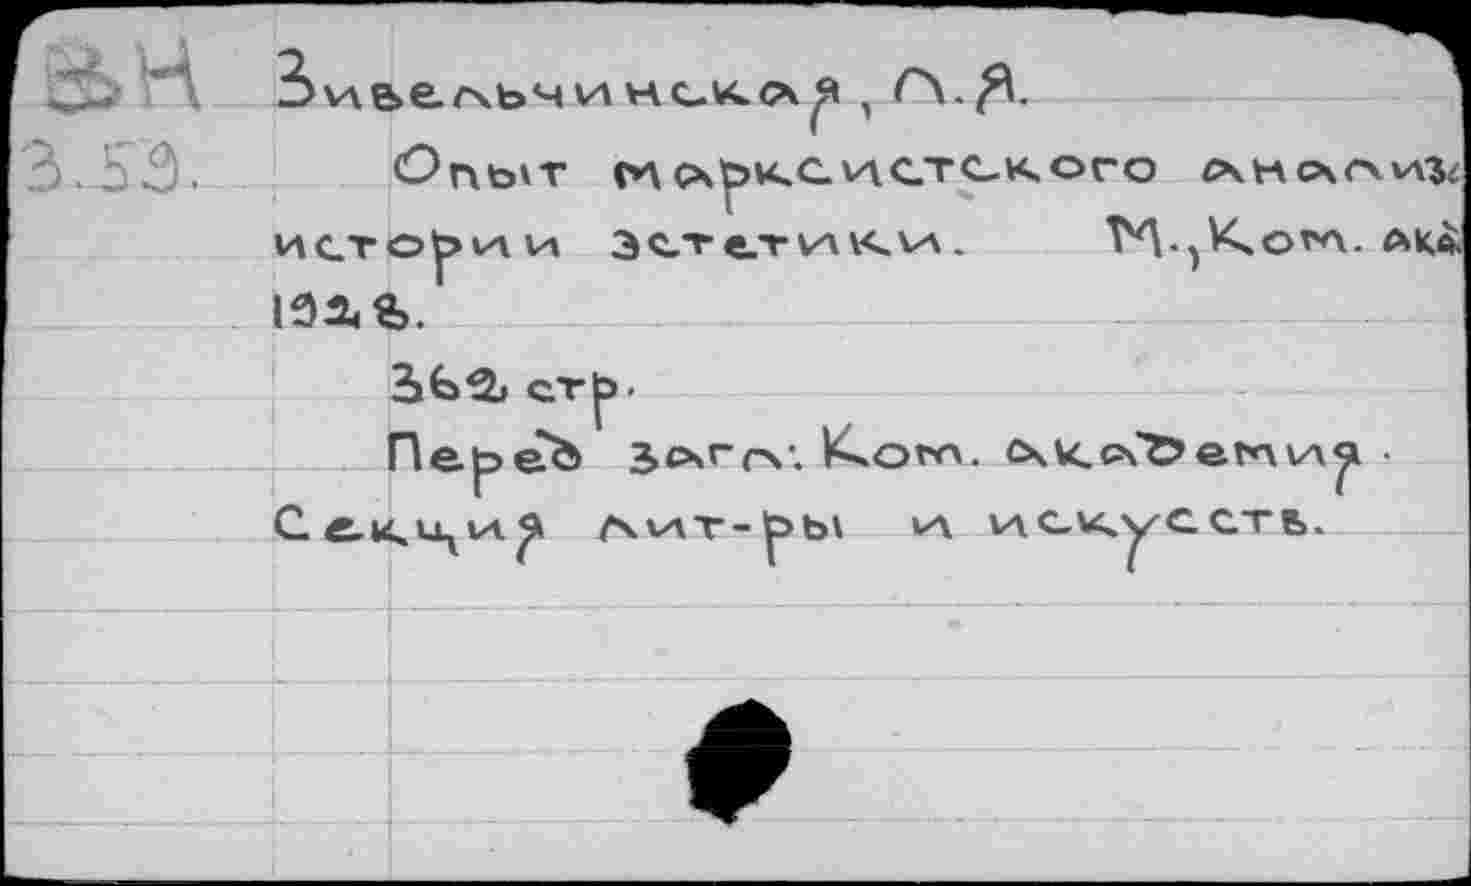 ВН Зивельчинская, Л.Я.
З.59. Опыт марксистского анализ
истории эстетики. М., Ком. ака
1928.
362 стр.
Перед загл: Ком. академия.
Секция лит-ры и искусств.